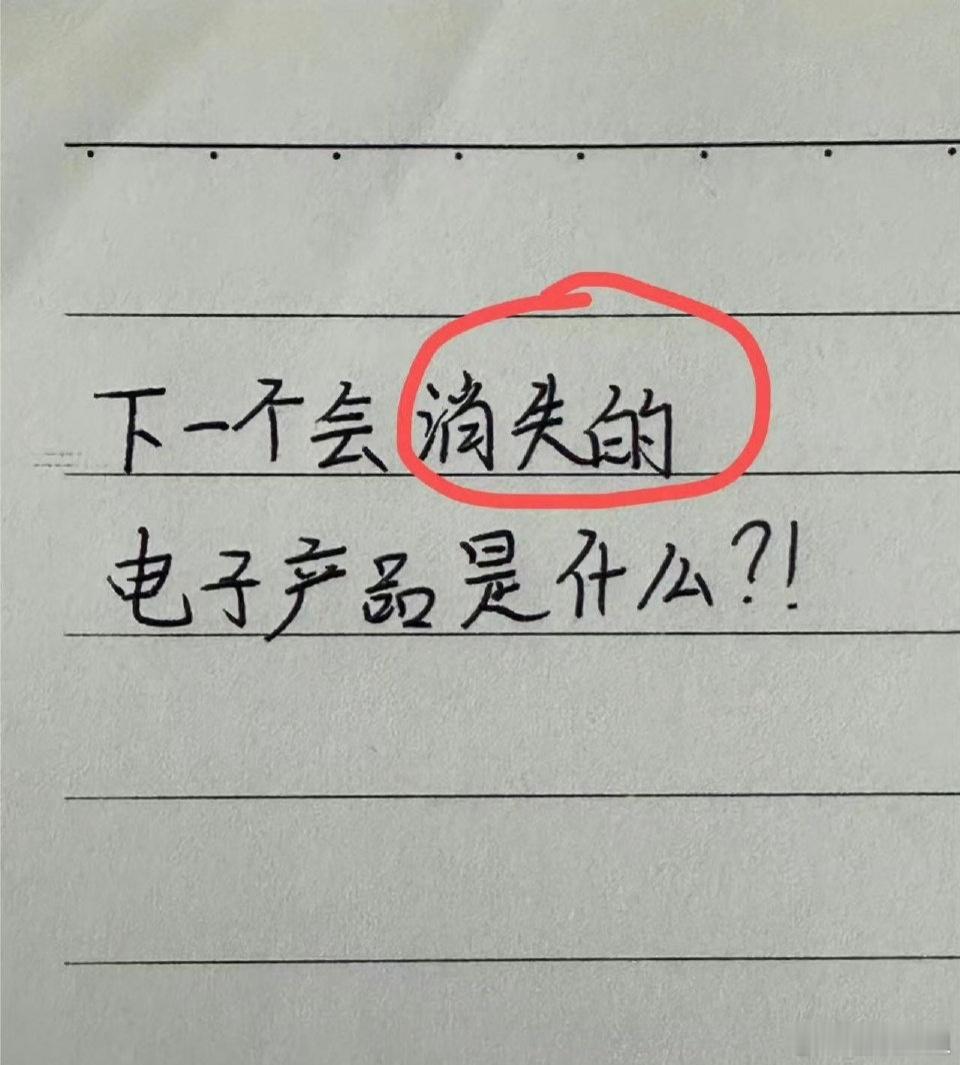 下一个会消失的
电子产品是什么?!